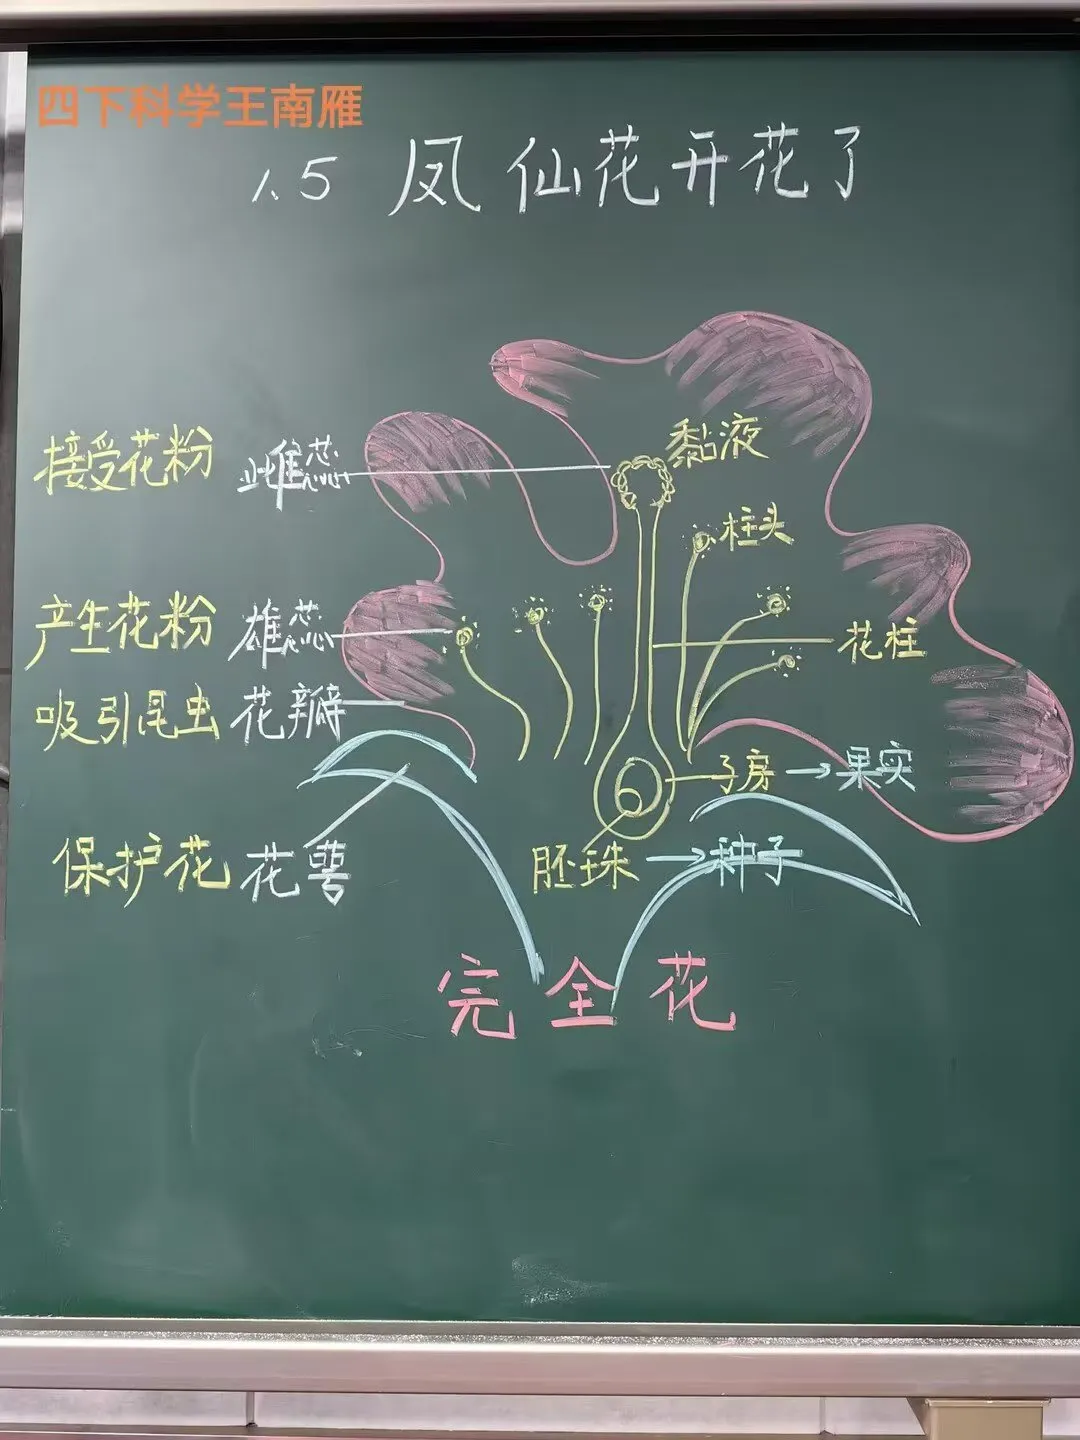 四下科学王南雁
1.5 凤仙花开花了
黏液
接受花粉 雌蕊
柱头
产生花粉 雄蕊
花柱
吸引昆虫 花瓣
子房→果实
保护花 花萼
胚珠→种子
完全花